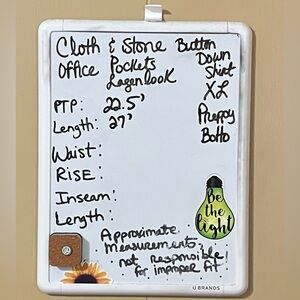 Cloth & Stone Button
Down
Shirt
XL
Preppy
Boho
Office Pockets
Lagenlook
PTP: 22.5'
Length: 27'
Waist:
Rise:
Inseam:
Length:
Approximate
measurements,
not responsible
for improper fit
Be
the
light
U BRANDS